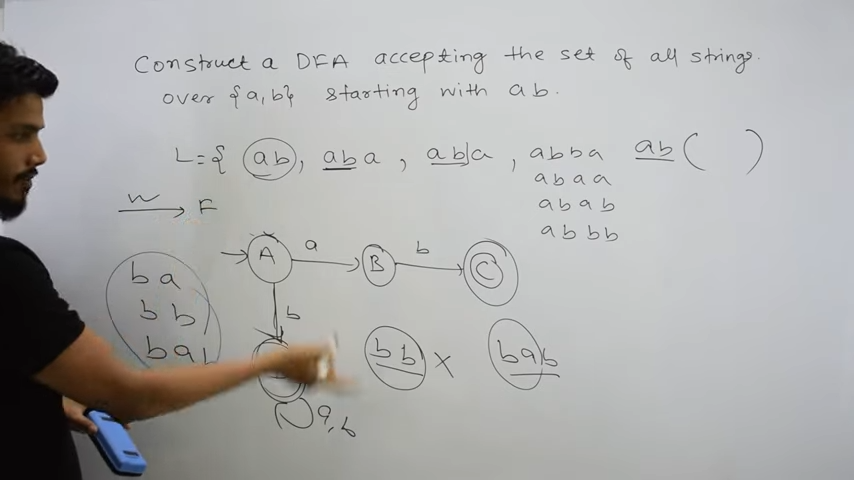 Construct a DFA accepting the set of all strings.
over {a,b} starting with ab.
L={ ab, aba, ab|a, abba ab( )
abaa
abab
abbb
w F
A a B b C
ba
bb
bab
b
bb X bab
a,b